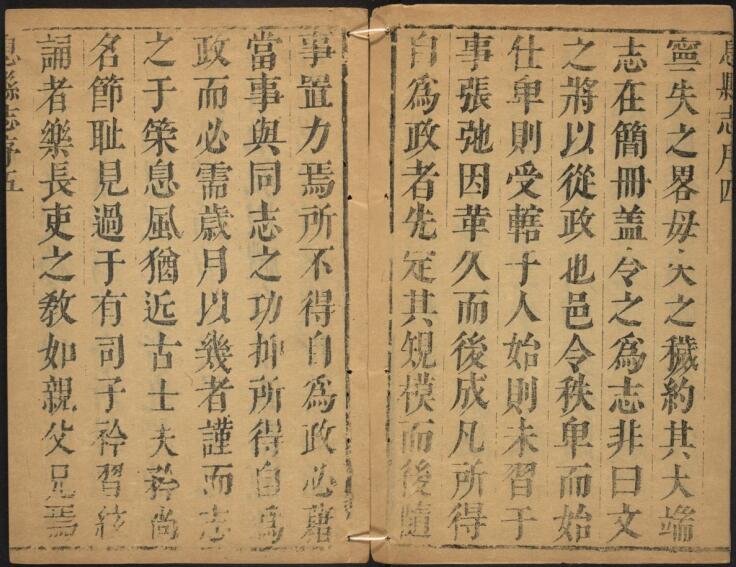 息縣志序四
寧失之畧毋失之穢約其大端
志在簡冊盖令之爲志非曰文
之將以從政也邑令秩卑而始
仕卑則受轄于人始則未習于
事張弛因革久而後成凡所得
自爲政者先定其䂓模而後隨
事置力焉所不得自爲政必藉
當事與同志之功抑所得自爲
政而必需歲月以幾者謹而志
之于䇿息風猶近古士大矜尚
名節耻見過于有司子衿習絃
誦者樂長吏之敎如親父兄焉
息縣志序五